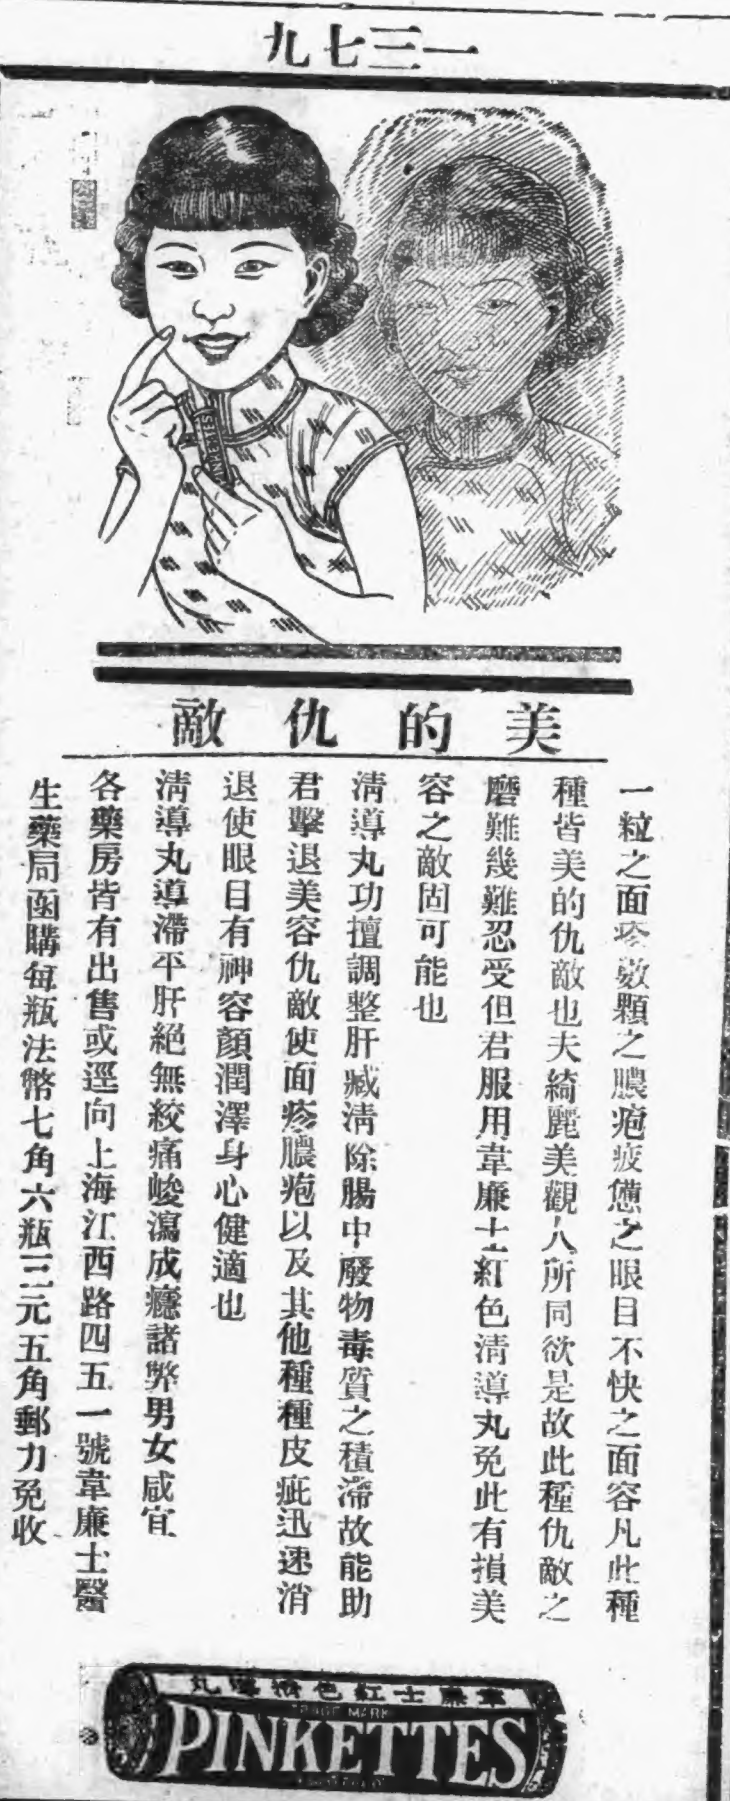 一三七九
美的仇敵
一粒之面疹數顆之膿疱疲憊之眼目不快之面容凡此種
種皆美的仇敵也夫綺麗美觀人所同欲是故此種仇敵之
磨難幾難忍受但君服用韋廉士紅色清導丸免此有損美
容之敵固可能也
清導丸功擅調整肝臟清除腸中廢物毒質之積滯故能助
君擊退美容仇敵使面疹膿疱以及其他種種皮疵迅速消
退使眼目有神容顏潤澤身心健適也
清導丸導滯平肝絕無絞痛峻瀉成癮諸弊男女咸宜
各藥房皆有出售或逕向上海江西路四五一號韋廉士醫
生藥局函購每瓶法幣七角六瓶三元五角郵力免收
韋廉士紅色清導丸
TRADE MARK
PINKETTES